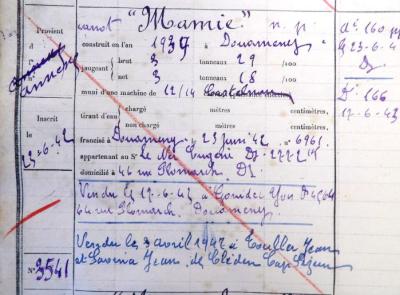 canot "Mamie" n. p.
Provient d
construit en l'an 1937 à Douarnenez
brut 3 tonneaux 29 /100
jaugeant
net 3 tonneaux 18 /100
annexe
muni d'une machine de 12/14
chargé mètres centimètres,
tirant d'eau
non chargé mètres centimètres,
Inscrit
le 23-6-42
francisé à Douarnenez le 23 juin 42 n° 6961
appartenant au Sr Le Eugène Dz
domicilié à 46 rue Plomarch. Dz
Vendu le 17-6-43 à Gonidec Yvon
46 rue Plomarch. Douarnenez
Vendu le 3 avril 1947 à Jean
et Savina Jean, de Cléden Cap Sizun
N° 3541
G 23-6-4
Dz
Dz 166
17-6-43